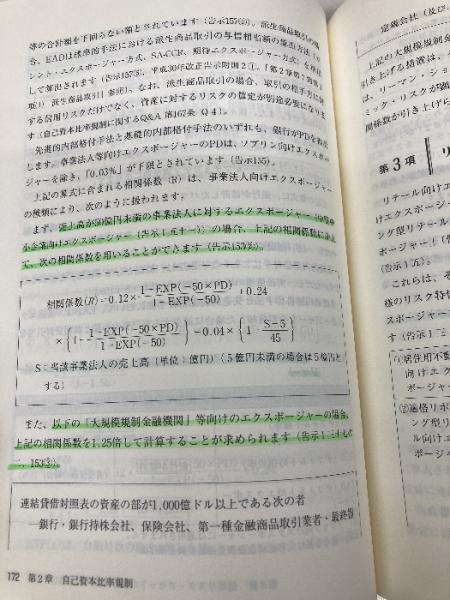 等の合計額を下回らない額とされています(告示157⑤)。派生商品取引の場
合、EADは標準的手法における派生商品取引の与信相当額の算出方法(カ
レント・エクスポージャー方式、SA-CCR、期待エクスポージャー方式)を
して算出されます(告示157⑤、平成30年改正告示附則2①。「第2章第7節第
取引、派生商品取引」参照)。なお、派生商品取引の場合、取引の相手方に対
する信用リスクだけでなく、資産に対するリスクの算定が別途必要になりま
す(自己資本比率規制に関するQ&A 第167条 Q4)。
先進的内部格付手法と基礎的内部格付手法のいずれも、銀行がPDを推計
します。事業法人等向けエクスポージャーのPDは、ソブリン向けエクスポー
ジャーを除き、「0.03%」が下限とされています(告示155)。
上記の算式に含まれる相関係数(R)は、事業法人向けエクスポージャー
の種類により、次のように扱われます。
まず、売上高が50億円未満の事業法人に対するエクスポージャー(中堅中
小企業向けエクスポージャー(告示1三十一))の場合、上記の相関係数に
て、次の相関係数を用いることができます(告示153⑤)。
相関係数(R)=0.12×1-EXP(-50×PD)/1-EXP(-50)+0.24
×{1-1-EXP(-50×PD)/1-EXP(-50)}-0.04×{1-S-5/45}
S:当該事業法人の売上高(単位:億円)(5億円未満の場合は5億円と
する)
また、以下の「大規模規制金融機関」等向けのエクスポージャーの場合、
上記の相関係数を1.25倍して計算することが求められます(告示1三十七の
、153④)。
連結貸借対照表の資産の部が1,000億ドル以上である次の者
―銀行・銀行持株会社、保険会社、第一種金融商品取引業者・最終指
172 第2章 自己資本比率規制
定義会社(及び
上記の大規模規制金
引き上げる措置は、
は、リーマン・ショ
ミック・リスクが顕
関係数が引き上げら
第3項 リ
リテール向けエ
けエクスポージ
ング型リテール
ポージャー」(
(告示1
これらは、そ
様のリスク特
スポージャー
す(告示1
①居住用不動
向けエク
ポージャ
②適格リボ
ング型リ
ル向けエ
ポージャ